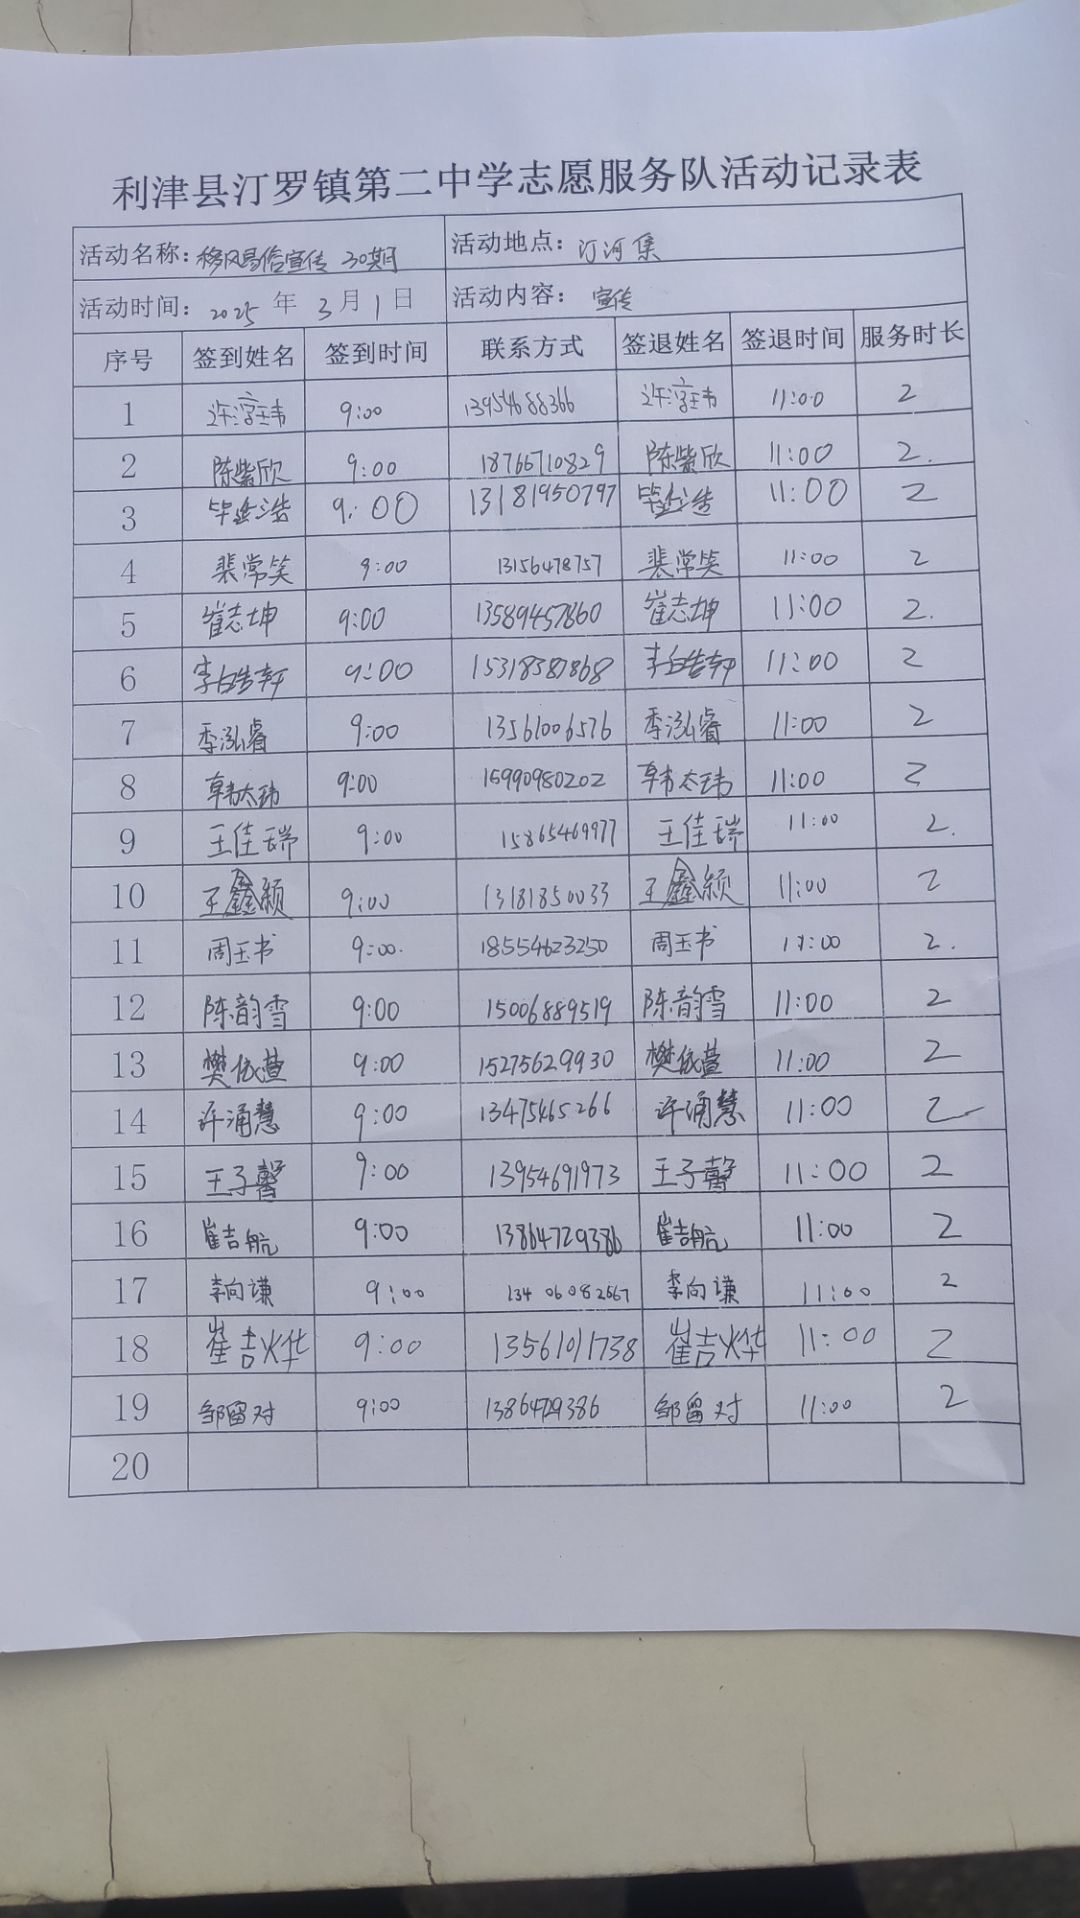 利津县汀罗镇第二中学志愿服务队活动记录表
活动名称：移风易俗宣传 30期 活动地点：汀河集
活动时间：2025 年 3 月 1 日 活动内容：宣传
序号 签到姓名 签到时间 联系方式 签退姓名 签退时间 服务时长
1 9:00 13954688366 11:00 2
2 陈紫欣 9:00 18766710829 陈紫欣 11:00 2.
3 9:00 13181950797 11:00 2
4 裴常笑 9:00 13156478757 裴常笑 11:00 2
5 崔志坤 9:00 13589457860 崔志坤 11:00 2.
6 李皓轩 9:00 15318387868 李皓轩 11:00 2
7 季泓睿 9:00 13561006576 季泓睿 11:00 2
8 韩太玮 9:00 15990980202 韩太玮 11:00 2
9 王佳瑞 9:00 15865469977 王佳瑞 11:00 2.
10 王鑫颖 9:00 13181850033 王鑫颖 11:00 2
11 周玉书 9:00. 18554623250 周玉书 11:00 2.
12 陈韵雪 9:00 15006889519 陈韵雪 11:00 2
13 樊依萱 9:00 15275629930 樊依萱 11:00 2
14 许涌慧 9:00 13475465266 许涌慧 11:00 2
15 王子馨 9:00 13954691973 王子馨 11:00 2
16 崔吉航 9:00 13864729386 崔吉航 11:00 2
17 李向谦 9:00 13406082667 李向谦 11:00 2
18 崔吉烨 9:00 13561011738 崔吉烨 11:00 2
19 邹留对 9:00 13864729386 邹留对 11:00 2
20